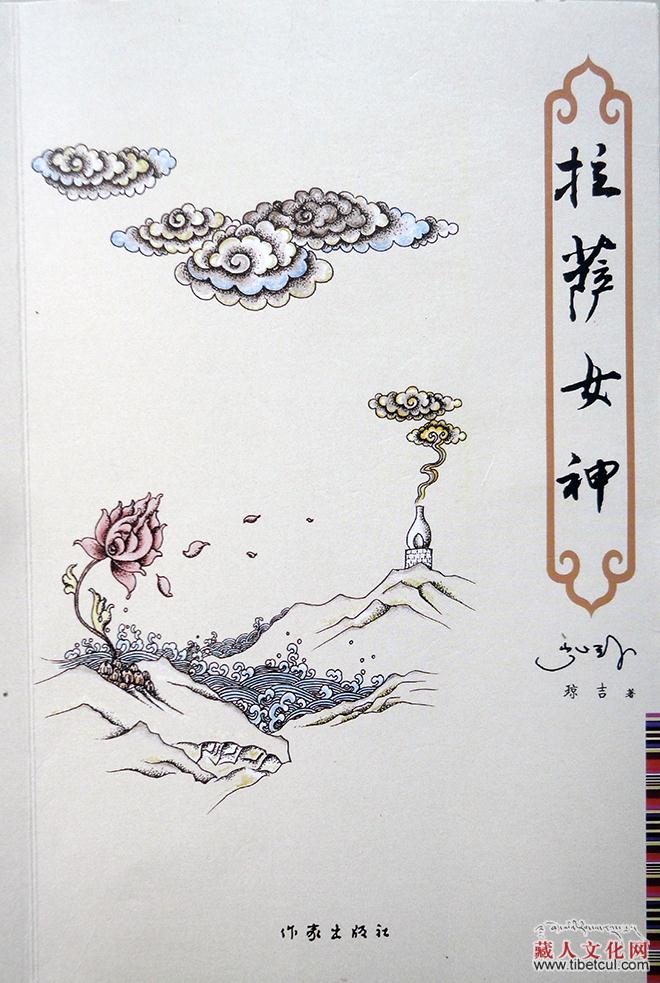 拉萨女神
琼吉 著
作家出版社
藏人文化网
www.tibetcul.com